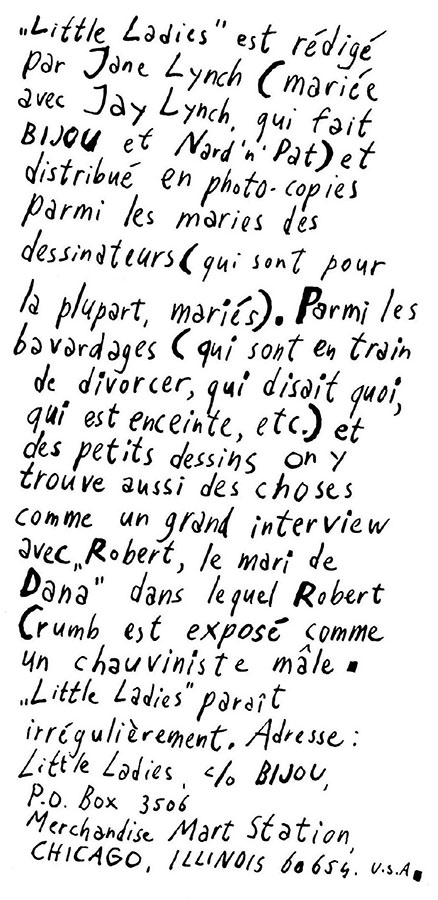 „Little Ladies" est rédigé
par Jane Lynch (mariée
avec Jay Lynch, qui fait
BIJOU et Nard 'n' Pat) et
distribué en photo-copies
parmi les maries des
dessinateurs (qui sont pour
la plupart, mariés). Parmi les
bavardages (qui sont en train
de divorcer, qui disait quoi,
qui est enceinte, etc.) et
des petits dessins on y
trouve aussi des choses
comme un grand interview
avec „Robert, le mari de
Dana" dans lequel Robert
Crumb est exposé comme
un chauviniste mâle.
„Little Ladies" paraît
irrégulièrement. Adresse:
Little Ladies, c/o BIJOU,
P.O. Box 3506
Merchandise Mart Station,
CHICAGO, ILLINOIS 60654. U.S.A.